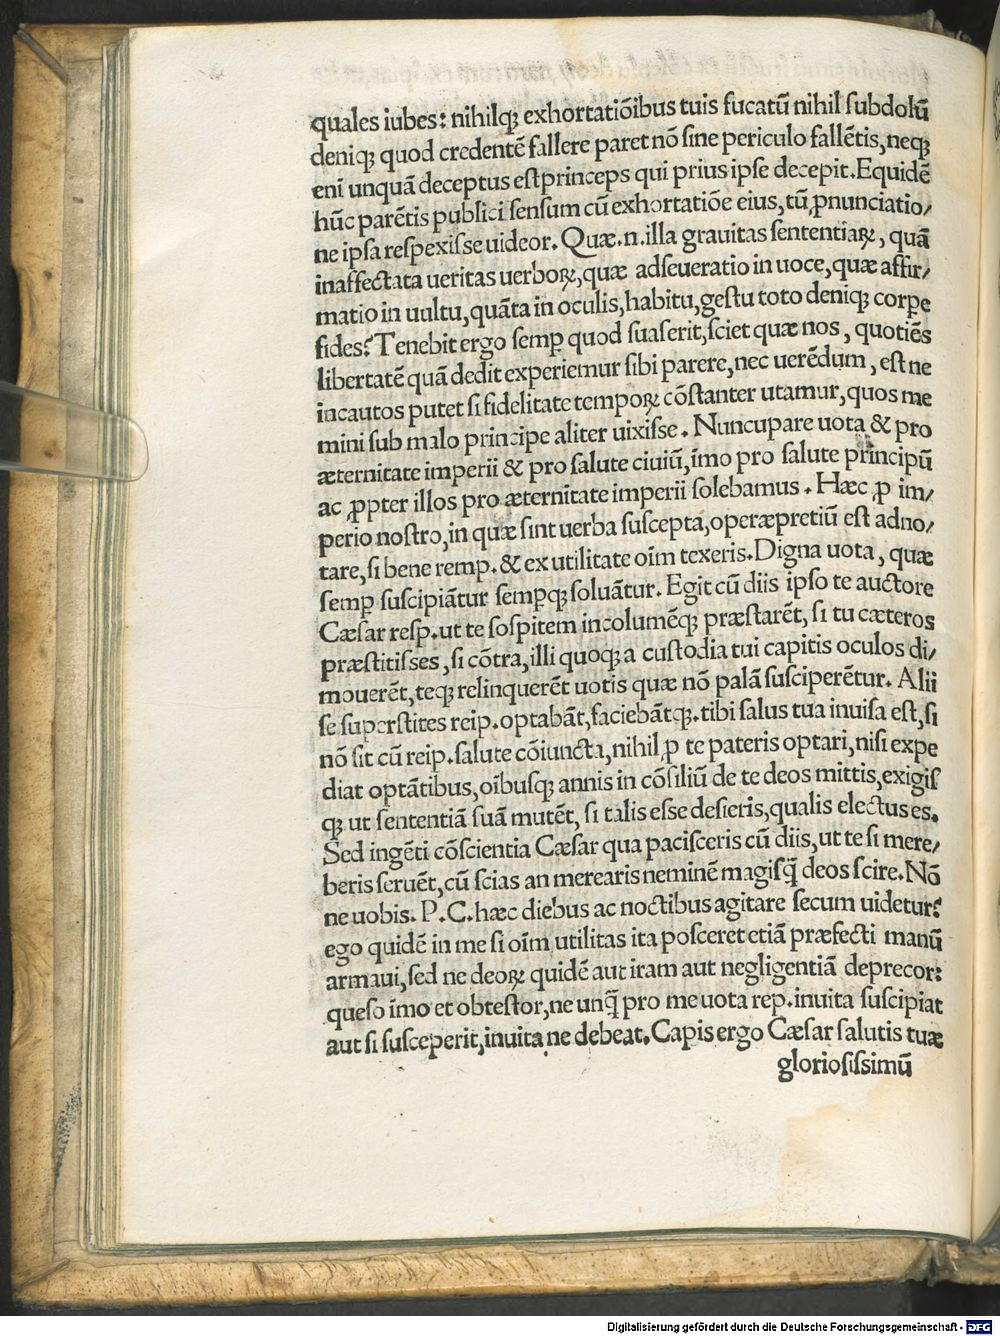 quales iubes: nihilq; exhortatiōibus tuis fucatū nihil ſubdolū
deniq; quod credentē fallere paret nō ſine periculo fallētis, neq;
eni unquā deceptus eſt princeps qui prius ipſe decepit. Equidē
hūc parētis publici ſenſum cū exhortatiōe eius, tū ꝓnunciatio/
ne ipſa reſpexiſſe uideor. Quæ .n. illa grauitas ſententiaꝝ, quā
inaffectata ueritas uerboꝝ, quæ adſeueratio in uoce, quæ affir/
matio in uultu, quāta in oculis, habitu, geſtu toto deniq; corpe
fides? Tenebit ergo ſemp quod ſuaſerit, ſciet quæ nos, quotiēs
libertatē quā dedit experiemur ſibi parere, nec uerēdum, eſt ne
incautos putet ſi fidelitate tempoꝝ cōſtanter utamur, quos me
mini ſub malo principe aliter uixiſſe. Nuncupare uota & pro
æternitate imperii & pro ſalute ciuiū, īmo pro ſalute principū
ac ꝓpter illos pro æternitate imperii ſolebamus. Hæc ꝓ im/
perio noſtro, in quæ ſint uerba ſuſcepta, operæpretiū eſt adno/
tare, ſi bene remp. & ex utilitate oīm texeris. Digna uota, quæ
ſemp ſuſcipiātur ſempq; ſoluātur. Egit cū diis ipſo te auctore
Cæſar reſp. ut te ſoſpitem incolumēq; præſtarēt, ſi tu cæteros
præſtitiſſes, ſi cōtra, illi quoq; a cuſtodia tui capitis oculos di/
mouerēt, teq; relinquerēt uotis quæ nō palā ſuſciperētur. Alii
ſe ſuperſtites reip. optabāt, faciebātq;. tibi ſalus tua inuiſa eſt, ſi
nō ſit cū reip. ſalute cōiuncta, nihil ꝓ te pateris optari, niſi expe
diat optātibus, oībuſq; annis in cōſiliū de te deos mittis, exigiſ
q; ut ſententiā ſuā mutēt, ſi talis eſſe deſieris, qualis electus es.
Sed ingēti cōſcientia Cæſar qua paciſceris cū diis, ut te ſi mere/
beris ſeruēt, cū ſcias an merearis neminē magiſq̄ deos ſcire. Nō
ne uobis. P. C. hæc diebus ac noctibus agitare ſecum uidetur?
ego quidē in me ſi oīm utilitas ita poſceret etiā præfecti manū
armaui, ſed ne deoꝝ quidē aut iram aut negligentiā deprecor:
queſo īmo et obteſtor, ne unq̄ pro me uota reſp. inuita ſuſcipiat
aut ſi ſuſceperit, inuita ne debeat. Capis ergo Cæſar ſalutis tuæ
glorioſiſſimū
Digitalisierung gefördert durch die Deutsche Forschungsgemeinschaft - DFG